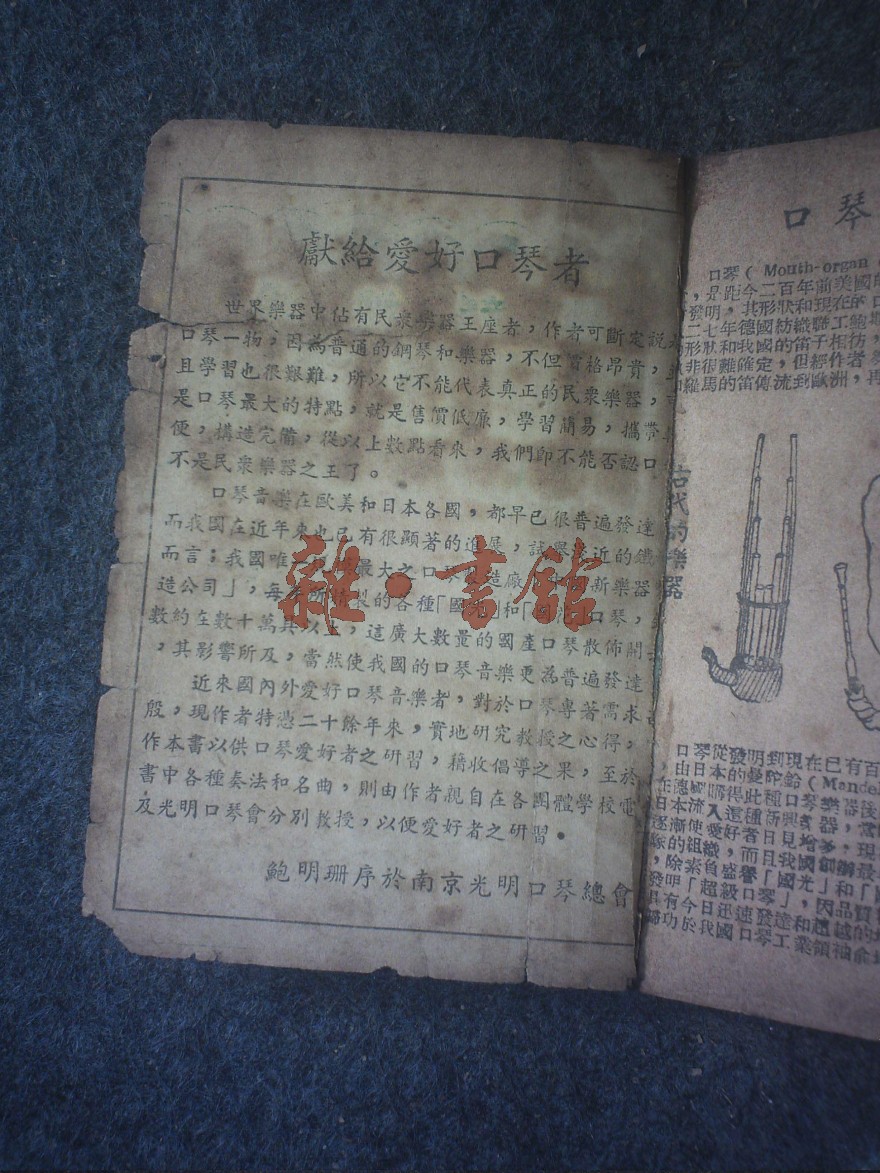 獻給愛好口琴者
世界樂器中佔有民衆樂器王座者，作者可斷定說
口琴一物，因為普通的鋼琴和樂器，不但價格昂貴，
且學習也很艱難，所以它不能代表真正的民衆樂器，
是口琴最大的特點，就是售價低廉，學習簡易，攜帶
便，構造完備，從以上數點看來，我們即不能否認口
不是民衆樂器之王了。
口琴音樂在歐美和日本各國，都早已很普遍發達
而我國在近年來也已有很顯著的進展，試舉最近的鐵
而言；我國唯一最大之口琴製造廠 新樂器
造公司」，每年所精製的各種「國光」和「口琴，
數約在數十萬具以上，這廣大數量的國產口琴散佈
，其影響所及，當然使我國的口琴音樂更為普遍發達
近來國內外愛好口琴音樂者，對於口琴專著需求
殷，現作者特憑二十餘年來，實地研究教授之心得，
作本書以供口琴愛好者之研習，藉收倡導之果，至於
書中各種奏法和名曲，則由作者親自在各團體學校電
及光明口琴會分別教授，以便愛好者之研習。
鮑明珊序於南京光明口琴總會
雜·書館
口琴
口琴（Mouth-organ
，是距今二百年前美國的
發明，其形狀和現在的口
二七年德國紡織聯工鮑
形狀和我國的笛子相彷，
非很難確定，但經作者
羅馬的笛傳流到歐洲，再
古代的樂器
口琴從發明到現在已有百
，由日本的曼陀鈴（Mandel
在德國購得此種口琴樂器後
日本流入這種新興樂器，當
逐漸使愛好者日見增多，現
隊的組織，而且我國創辦最
，除素負盛譽「國光」和「
發明「超級口琴」，因品質
具有今日迅速發達和超越的
歸功於我國口琴工業領袖俞